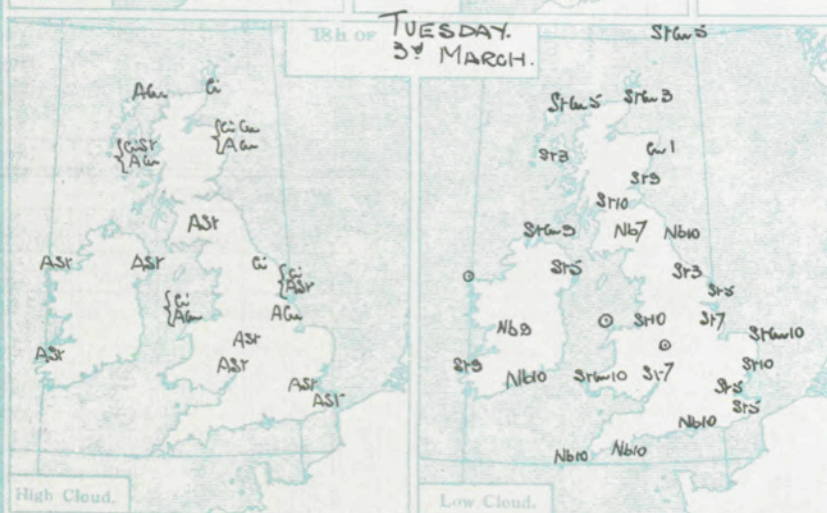 18h OF TUESDAY.
3rd MARCH.
ACu
Ci
{CiSt
ACu
{CiCu
ACu
ASt
ASt
ASt
Ci
{Ci
ASt
{Ci
ACu
ACu
ASt
ASt
ASt
ASt
ASt
High Cloud.
StCu5
StCu5
StCu3
St3
Cu1
St9
St10
StCu9
Nb7
Nb10
St5
St3
St5
Nb9
St10
St7
StCu10
St9
Nb10
StCu10
St7
St10
St5
St5
Nb10
Nb10
Nb10
Low Cloud.